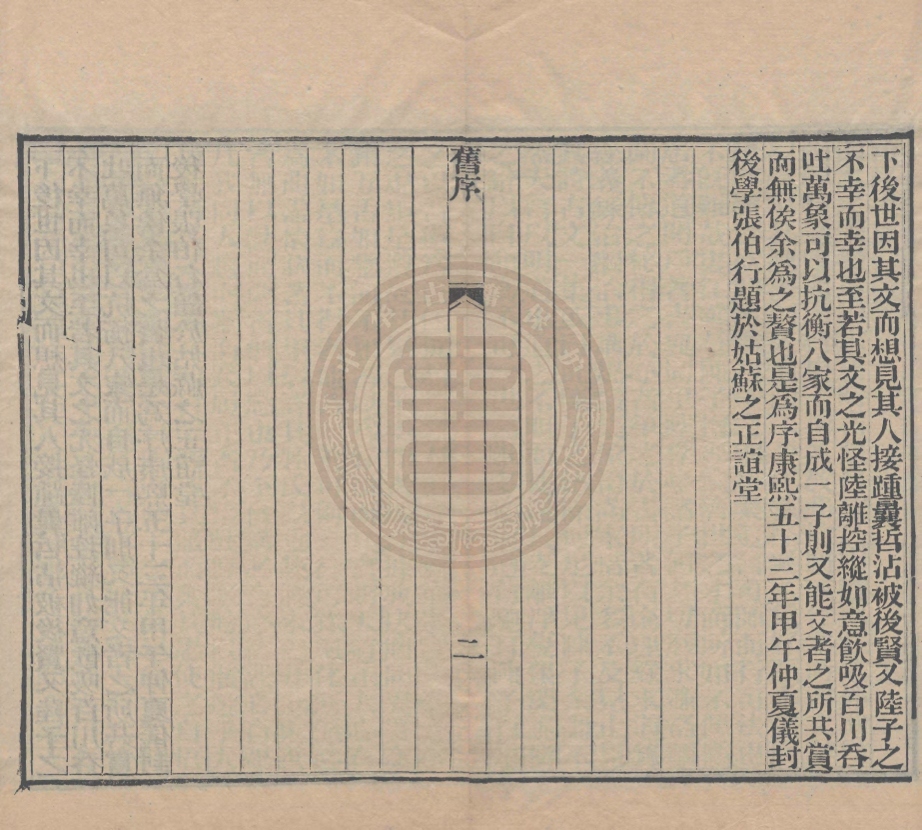 下後世因其文而想見其人接踵曩哲沾被後賢又陸子之
不幸而幸也至若其文之光怪陸離控縱如意飮吸百川吞
吐萬象可以抗衡八家而自成一子則又能文者之所共賞
而無俟余爲之贅也是爲序康熙五十三年甲午仲夏儀封
後學張伯行題於姑蘇之正誼堂
舊序
二